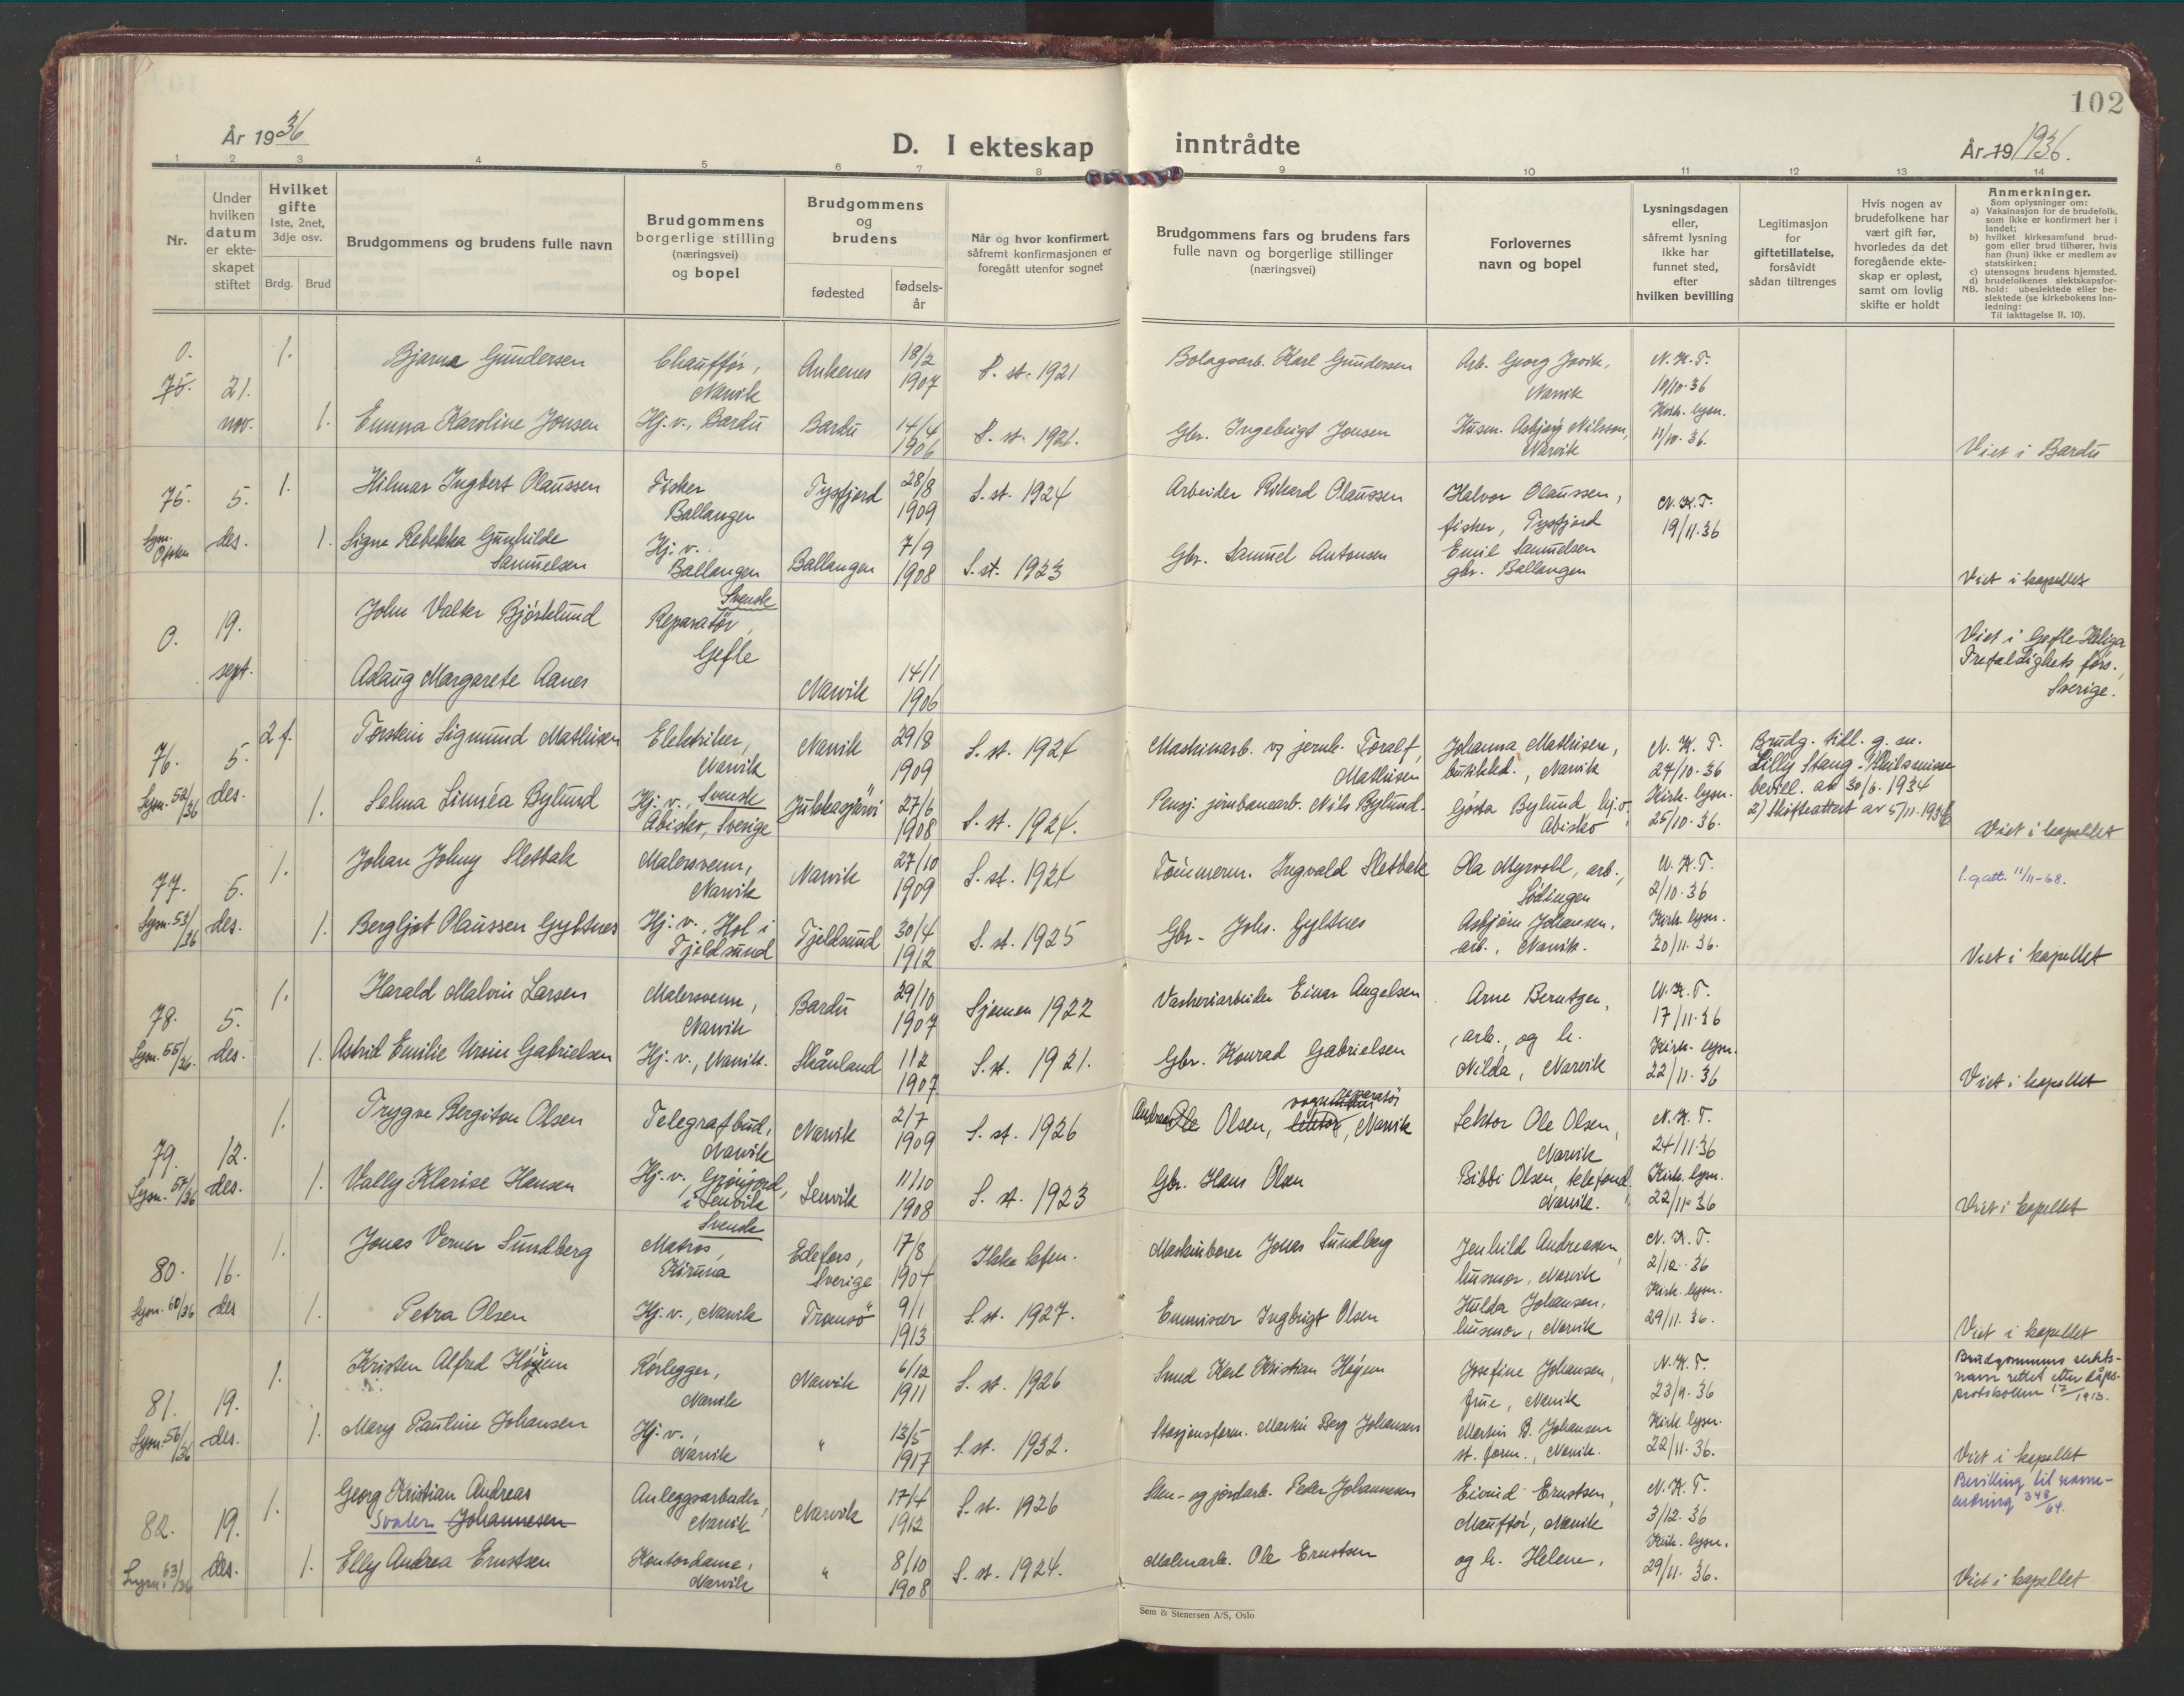 102
År 1936
D. I ekteskap inntrådte
År 19 1936.
1 2 3 4 5 6 7 8 9 10 11 12 13 14
Nr.
Under hvilken datum er ekte-skapet stiftet
Hvilket gifte
1ste, 2net, 3dje osv.
Brdg. Brud
Brudgommens og brudens fulle navn
Brudgommens borgerlige stilling (næringsvei) og bopel
Brudgommens og brudens
fødested
fødsels-år
Når og hvor konfirmert, såfremt konfirmasjonen er foregått utenfor sognet
Brudgommens fars og brudens fars fulle navn og borgerlige stillinger (næringsvei)
Forlovernes navn og bopel
Lysningsdagen eller, såfremt lysning ikke har funnet sted, efter hvilken bevilling
Legitimasjon for giftetillatelse, forsåvidt sådan tiltrenges
Hvis nogen av brudefolkene har vært gift før, hvorledes da det foregående ekte-skap er opløst, samt om lovlig skifte er holdt
Anmerkninger.
Som oplysninger om:
a) Vaksinasjon for de brudefolk, som ikke er konfirmert her i landet;
b) hvilket kirkesamfund brud-gom eller brud tilhører, hvis han (hun) ikke er medlem av statskirken;
c) utensogns brudens hjemsted.
d) brudefolkenes slektskapsfor-hold: ubeslektede eller be-slektede (se kirkebokens inn-ledning:
NB. Til iakttagelse II. 10).
0. 75. 21. nov.
1. Bjarne Gundersen Chauffør, Narvik Ankenes 18/2 1907 S. st. 1921 Bolagsarb. Karl Gundersen Arb. Georg Jorik, Narvik N. K. T. 10/10-36
1. Emma Karoline Jonsen Hj. v., Bardu Bardu 14/4 1906 S. st. 1921. Gbr. Ingebrigt Jonsen Husm. Asbjørg Nilsson, Narvik Kirk. lysn. 11/10.36. Viet i Bardu
75. Lysn. Ofoten 5. des.
1. Hilmar Ingbert Olaussen Fisker Ballangen Tysfjord 28/8 1909 S. st. 1924 Arbeider Rikard Olaussen Halvor Olaussen, fisker, Tysfjord N. K. T. 19/11.36
1. Signe Rebekka Gunhilde Samuelsen Hj. v. Ballangen Ballangen 7/9 1908 S. st. 1923 Gbr. Samuel Antonsen Emil Samuelsen gbr. Ballangen Viet i kapellet
0. 19. sept.
John Valter Bjørklund Svensk Reparatør, Gefle Viet i Gefle Heliga Trefaldighets förs., Sverige.
Aslaug Margarete Aanes Narvik 14/1 1906
76. Lysn. 52/36 5. des.
2 f. Torstein Sigmund Mathisen Elektriker, Narvik Narvik 29/8 1909 S. st. 1924 Maskinarb. v/ jernb. Toralf Mathisen Johanna Mathisen, butikkd., Narvik N. K. T. 24/10-36 Brudg. tidl. g. m. Lilly Stang - Skilsmisse bevill. av 30/6. 1934 2) Skifteattest av 5/11.1936
1. Selma Linnéa Bylund Hj. v., Svensk Abisko, Sverige Jukkasjärvi 27/6 1908 S. st. 1924. Pensj. jernbanearb. Nils Bylund. Gösta Bylund hj.v. Abisko Kirk. lysn. 25/10-36. Viet i kapellet
77. Lysn. 53/36 5. des.
1. Johan Johny Sletbak Malersvenn, Narvik Narvik 27/10 1909 S. st. 1924 Tömmerm. Ingvald Sletbak Ola Myrvoll, arb., Lödingen N. K. T. 2/10-36 l. g. att. 11/11-68.
1. Bergljot Olaussen Gyltnes Hj. v., Hol i Tjeldsund Tjeldsund 30/4 1912 S. st. 1925 Gbr. Johs. Gyltnes Asbjørn Johansen, arb., Narvik. Kirk. lysn. 20/11-36. Viet i kapellet
78. Lysn. 55/36. 5. des.
1. Harald Malvin Larsen Malersvenn, Narvik Bardu 29/10 1907 Sjømen 1922 Vaskeriarbeider Einar Angelsen Arne Berntzen, arb., og h. N. K. T. 17/11-36
1. Astrid Emilie Ursin Gabrielsen Hj. v., Narvik. Skånland 11/2 1907 S. st. 1921. Gbr. Konrad Gabrielsen Nilda, Narvik Kirk. lysn. 22/11-36 Viet i kapellet
79. Lysn. 57/36 12. des.
1. Trygve Bergiton Olsen Telegrafbud, Narvik Narvik 2/7 1909 S. st. 1926 Andreas Ole Olsen, lektor, vognreparatør, Narvik Lektor Ole Olsen, Narvik N. K. T. 24/11-36
1. Vally Klarise Hansen Hj. v., Grönjord, i Lenvik Lenvik 11/10 1908 S. st. 1923 Gbr. Hans Olsen Bibbi Olsen, telefond. Narvik. Kirk. lysn. 22/11-36 Viet i kapellet
80. Lysn. 60/36 16. des
1. Jonas Verner Sundberg Svensk Matros, Kiruna Edefors, Sverige 17/8 1904 Maskinborer Jonas Sundberg Jenhild Andreassen husmor, Narvik N. K. T. 2/12-36
1. Petra Olsen Hj. v., Narvik Tromsö 9/1 1913 S. st. 1927. Emissær Ingbrigt Olsen Hulda Johansen, husmor, Narvik Kirk. lysn. 29/11-36. Viet i kapellet
81. Lysn. 56/36 19. des.
1. Kristen Alfred Höyem Rørlegger, Narvik Narvik 6/12 1911 S. st. 1926 Smed Karl Kristian Höyem Josefine Johansen, frue, Narvik N. K. T. 23/11-36 Brudgommens slekts-navn rettet etter dåps-protokollen 17/1913.
1. Mary Pauline Johansen Hj. v., Narvik " 13/5 1917 S. st. 1932. Stasjonsform. Martin Berg Johansen Martin B. Johansen st. form., Narvik. Kirk. lysn. 22/11-36. Viet i kapellet
82. Lysn. 63/36 19. des.
1. Georg Kristian Andreas Svaler Johannesen Anleggsarbeider, Narvik Narvik 17/4 1912 S. st. 1926 Sten- og jordarb. Peder Johannesen Eivind Ernstsen, chauffør, Narvik N. K. T. 3/12-36 Bevilling til navne-endring 348/64.
1. Elly Andrea Ernstsen Kontordame, Narvik " 8/10 1908 S. st. 1924. Malmarb. Ole Ernstsen og h. Helene, Kirk. lysn. 29/11-36. Viet i kapellet
Sem & Stenersen A/S, Oslo